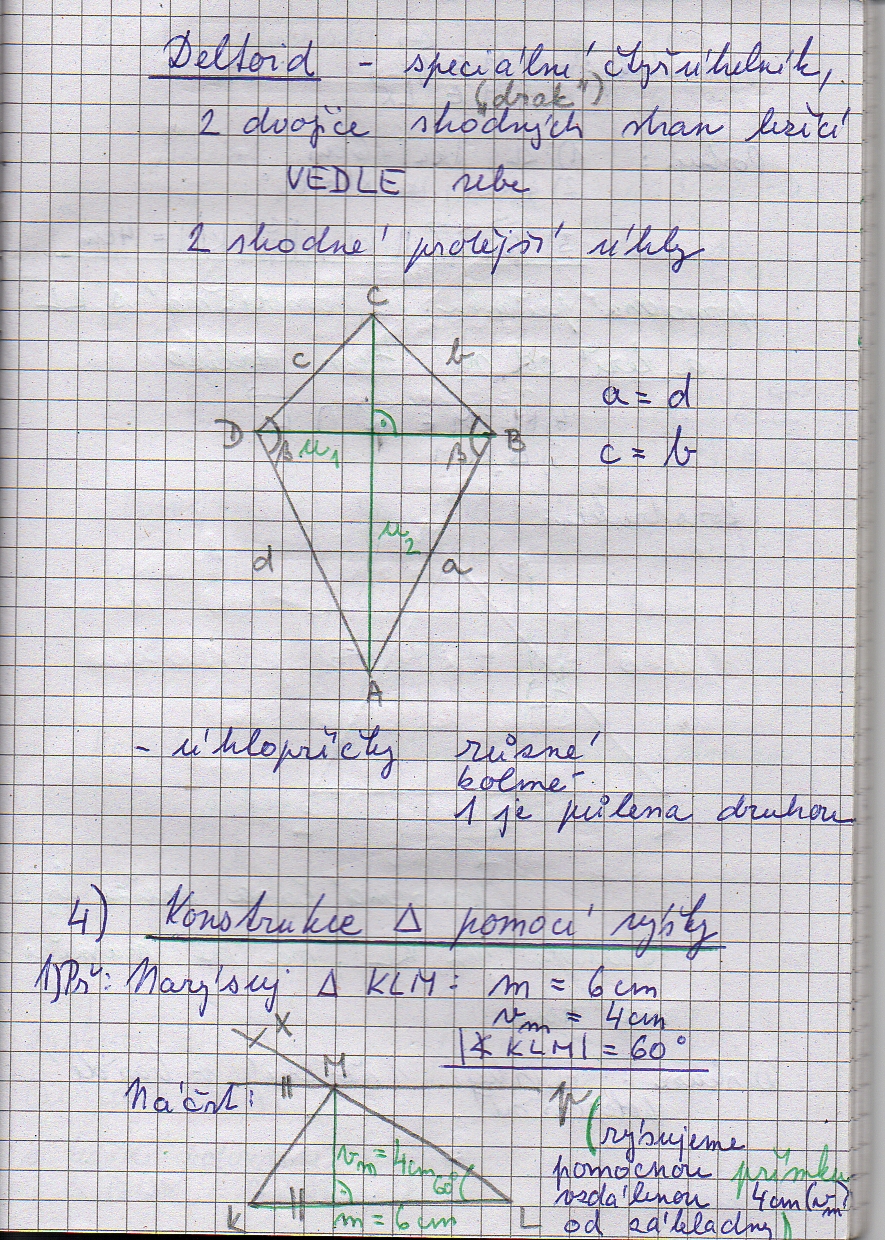 Deltoid - speciální čtyřúhelník,
("drak")
2 dvojice shodných stran ležící
VEDLE sebe
2 shodné protější úhly
C
c
b
a = d
D
B
β
u₁
β
c = b
u₂
d
a
A
- úhlopříčky různé
kolmé
1 je půlena druhou
4) Konstrukce Δ pomocí výšky
1) Př: Narýsuj Δ KLM: m = 6 cm
vₘ = 4 cm
|∢ KLM| = 60°
X
M
Náčrt:
p
(rýsujeme
vₘ = 4 cm
60°
pomocnou přímku
vzdálenou 4 cm (vₘ)
K
m = 6 cm
L
od základny)